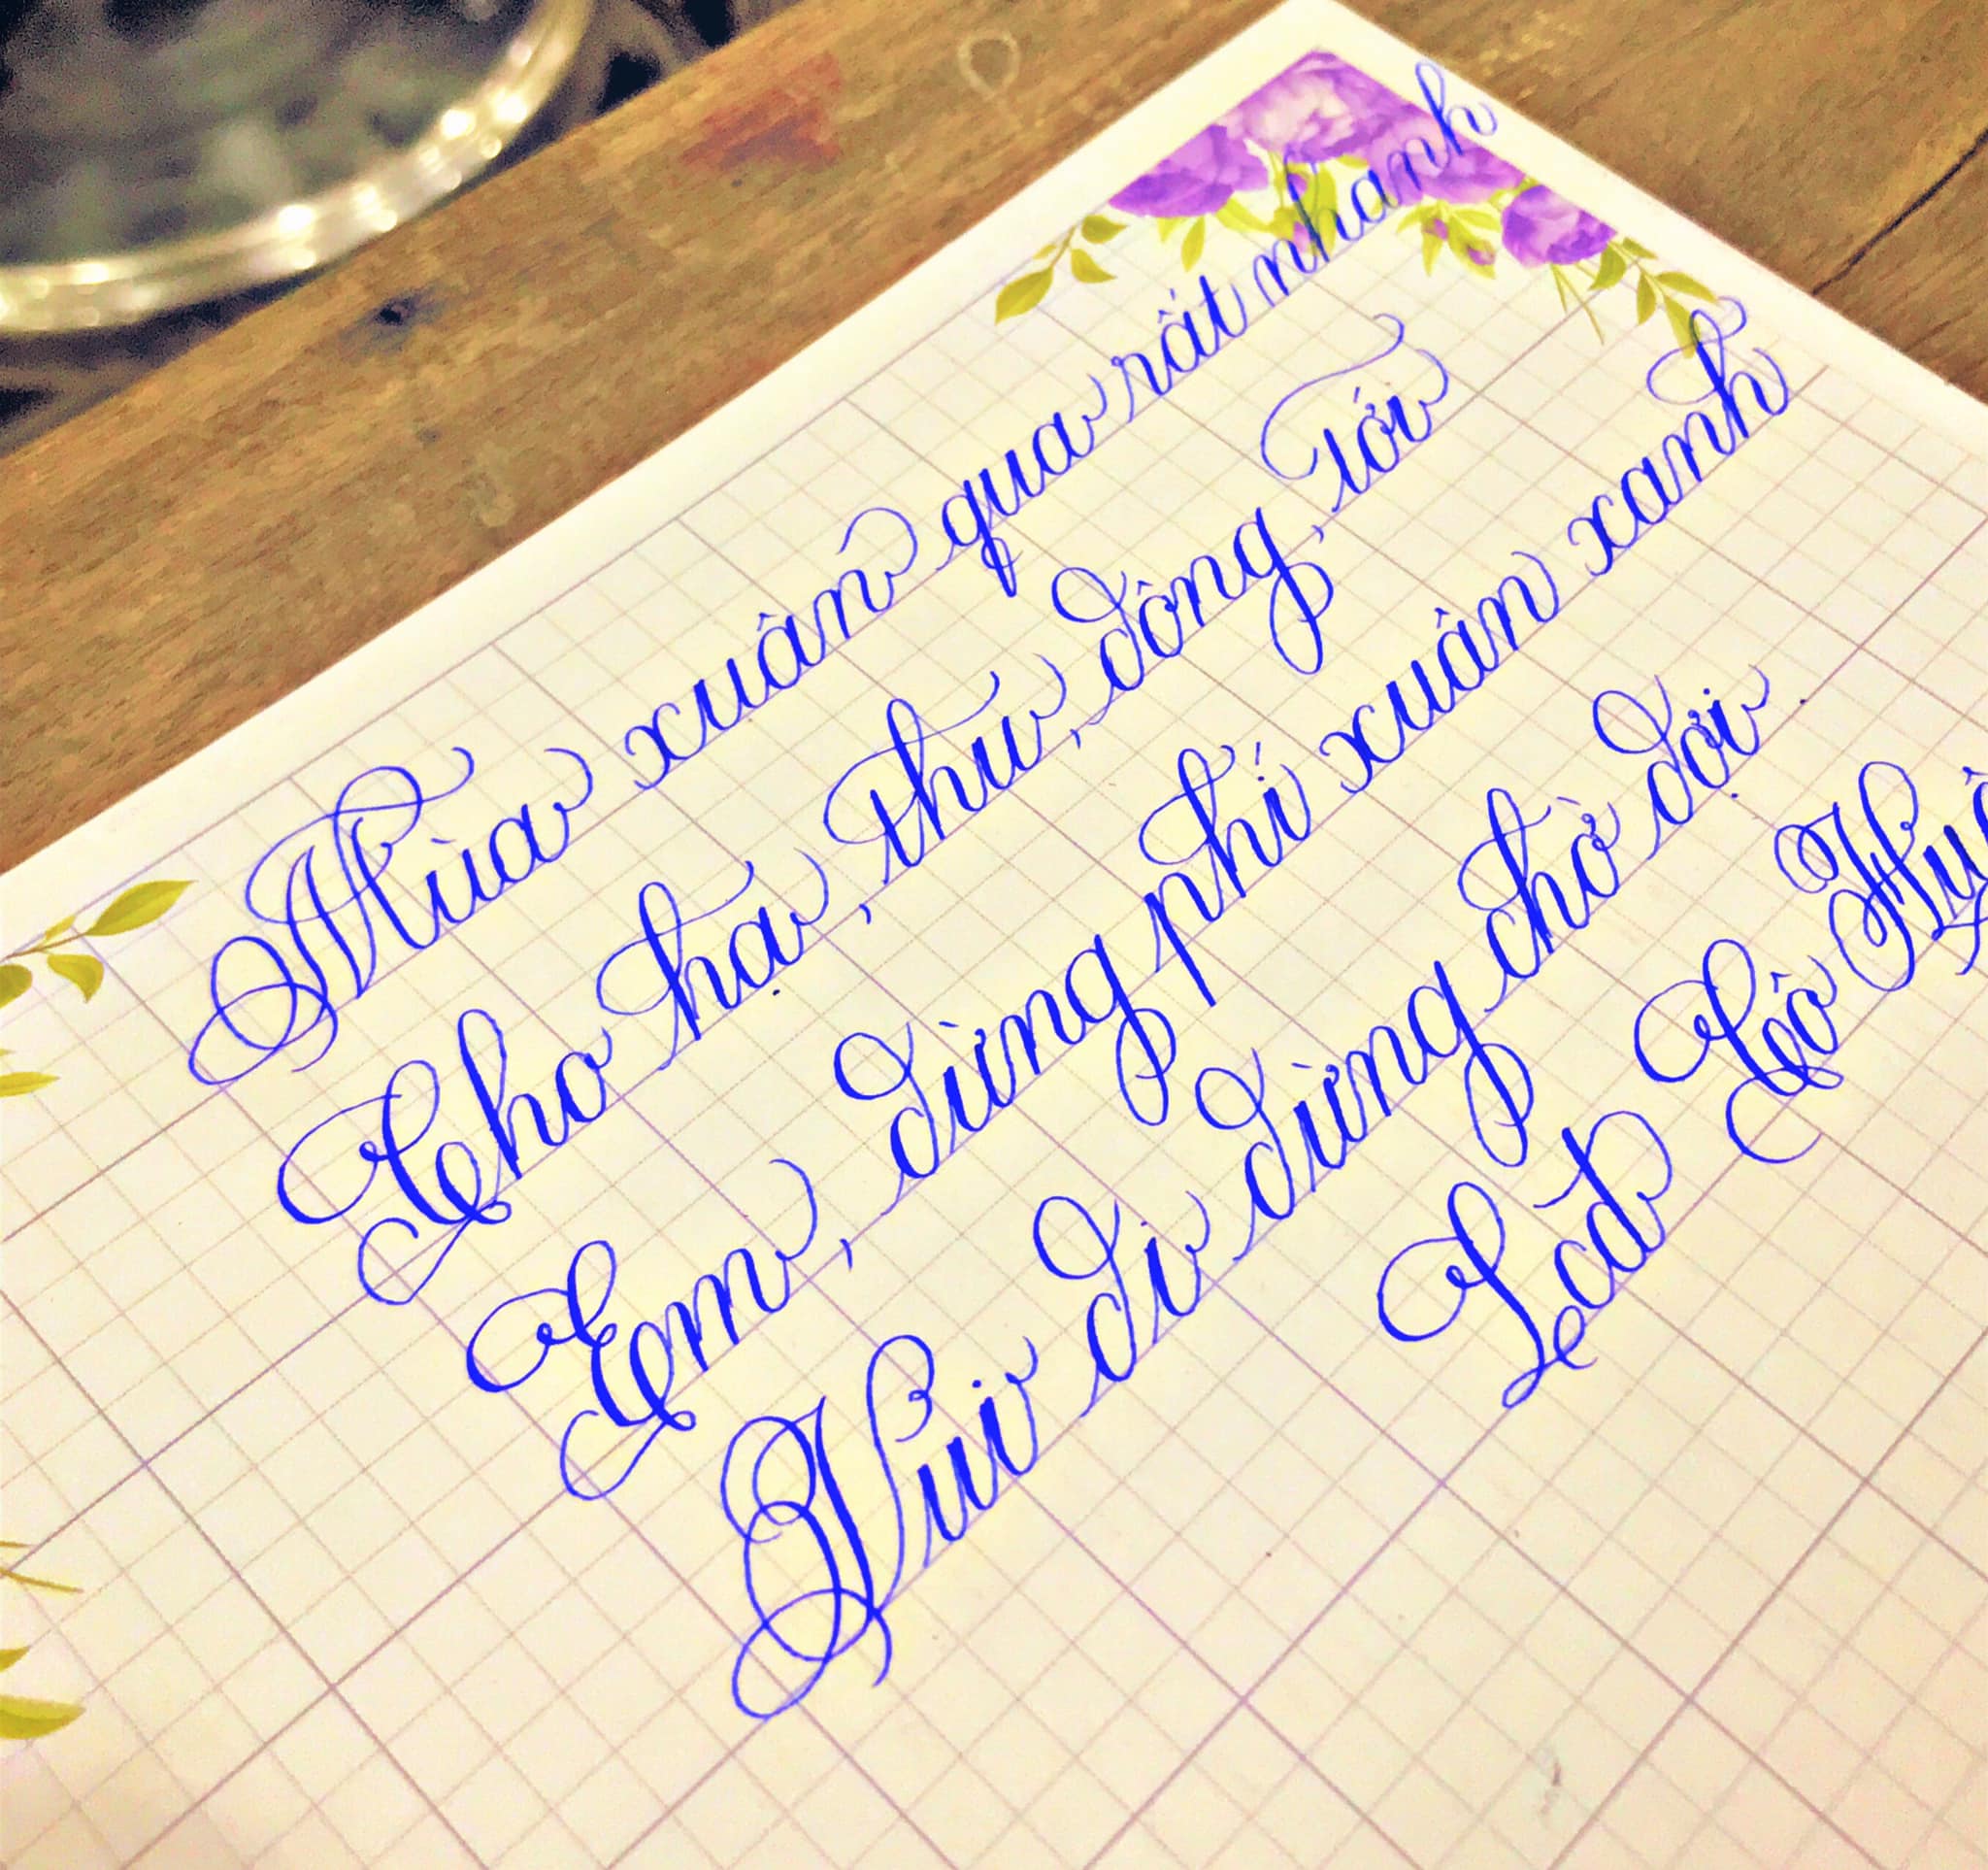 Mùa xuân qua rất nhanh
Cho hạ, thu, đông, tới
Em, đừng phí xuân xanh
Vui đi đừng chờ đợi.